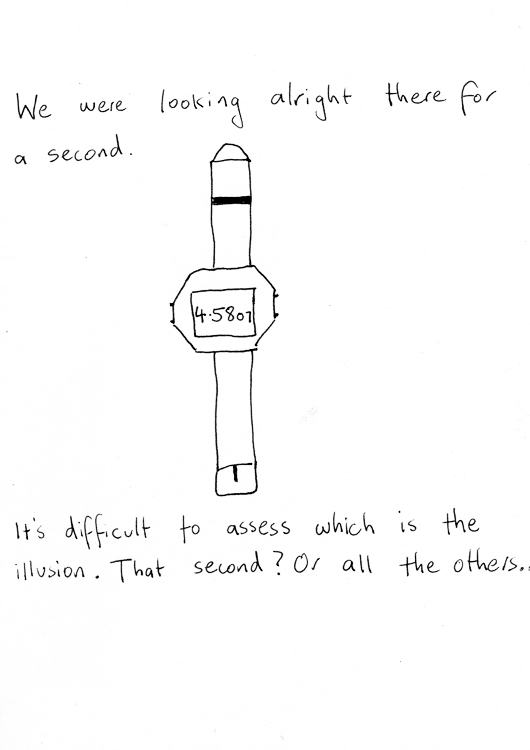 We were looking alright there for
a second.
4.5807
It's difficult to assess which is the
illusion. That second? Or all the others..